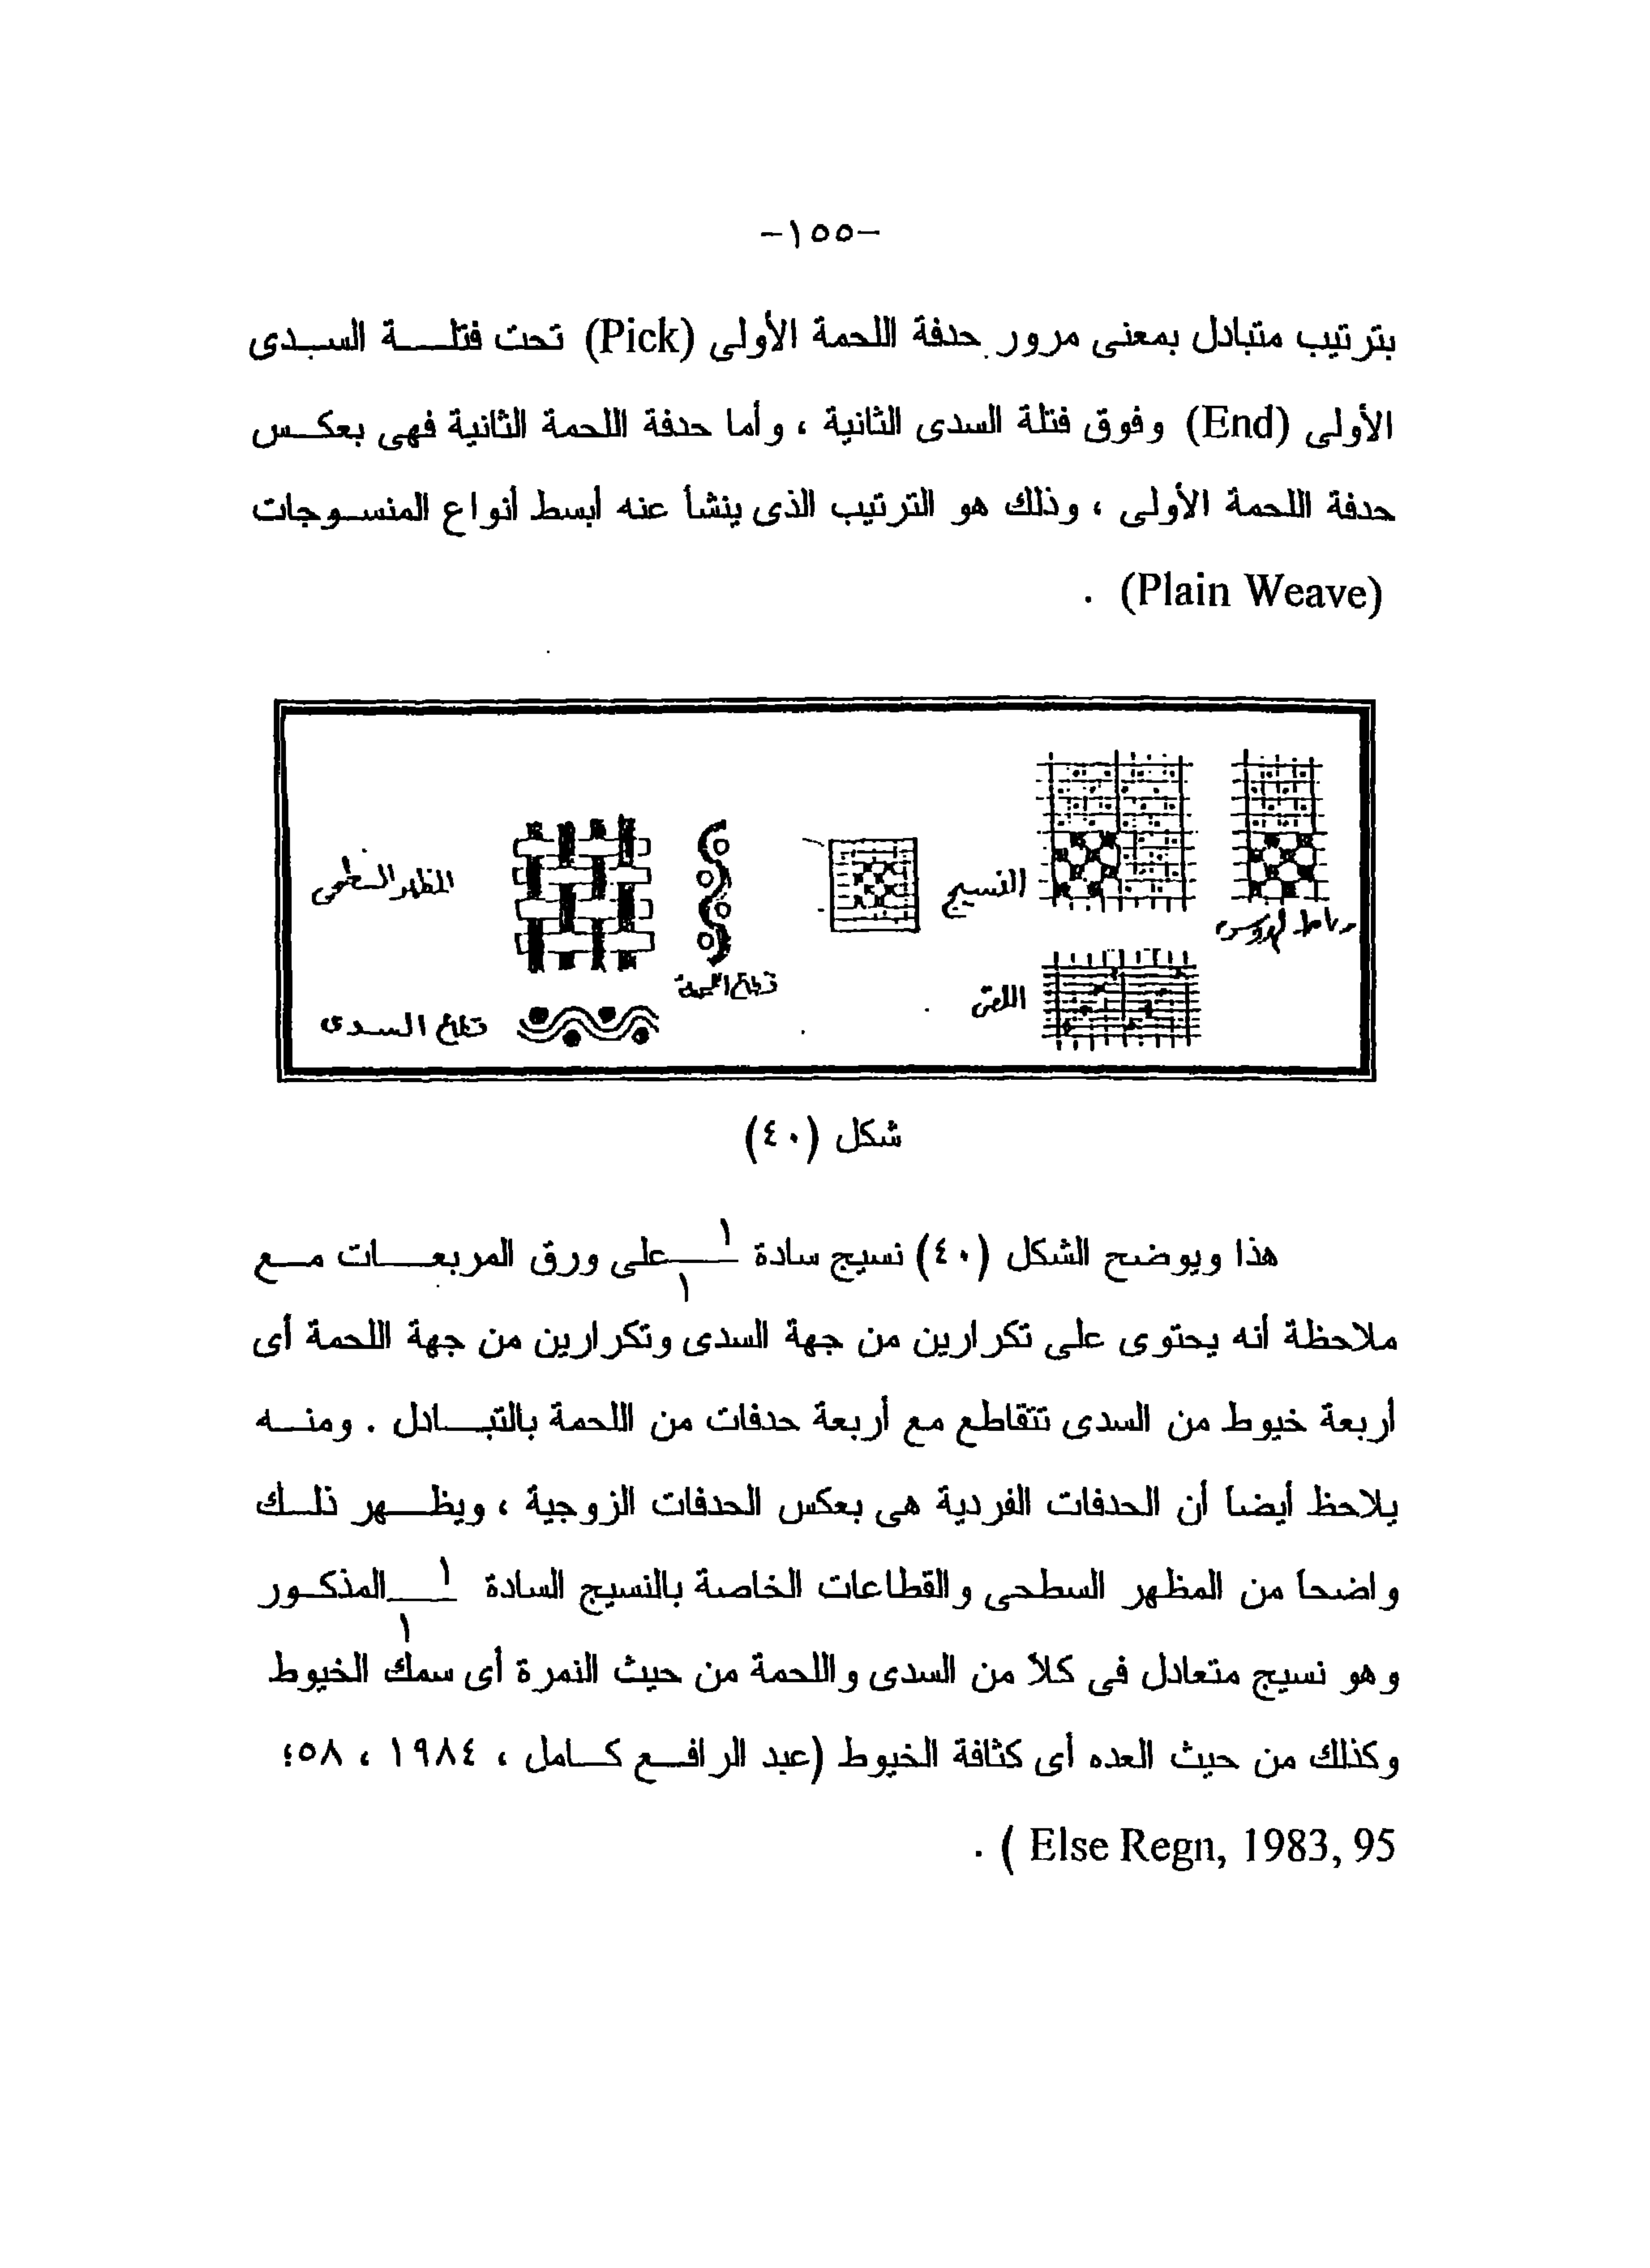 -١٥٥-
بترتيب متبادل بمعنى مرور حدفة اللحمة الأولى (Pick) تحت فتلة السدى
الأولى (End) وفوق فتلة السدى الثانية ، وأما حدفة اللحمة الثانية فهى بعكس
حدفة اللحمة الأولى ، وذلك هو الترتيب الذى ينشأ عنه أبسط أنواع المنسوجات
(Plain Weave) .
النسيج
المظهر السطحى
قطاع اللحمة
اللقى
قطاع السدى
شكل (٤٠)
هذا ويوضح الشكل (٤٠) نسيج سادة ١/١ على ورق المربعات مع
ملاحظة أنه يحتوى على تكرارين من جهة السدى وتكرارين من جهة اللحمة أى
أربعة خيوط من السدى تتقاطع مع أربعة حدفات من اللحمة بالتبادل . ومنه
يلاحظ أيضا أن الحدفات الفردية هى بعكس الحدفات الزوجية ، ويظهر ذلك
واضحا من المظهر السطحى والقطاعات الخاصة بالنسيج السادة ١/١ المذكور
وهو نسيج متعادل فى كلا من السدى واللحمة من حيث النمرة أى سمك الخيوط
وكذلك من حيث العده أى كثافة الخيوط (عبد الرافع كامل ، ١٩٨٤ ، ٥٨؛
Else Regn, 1983, 95 ) .